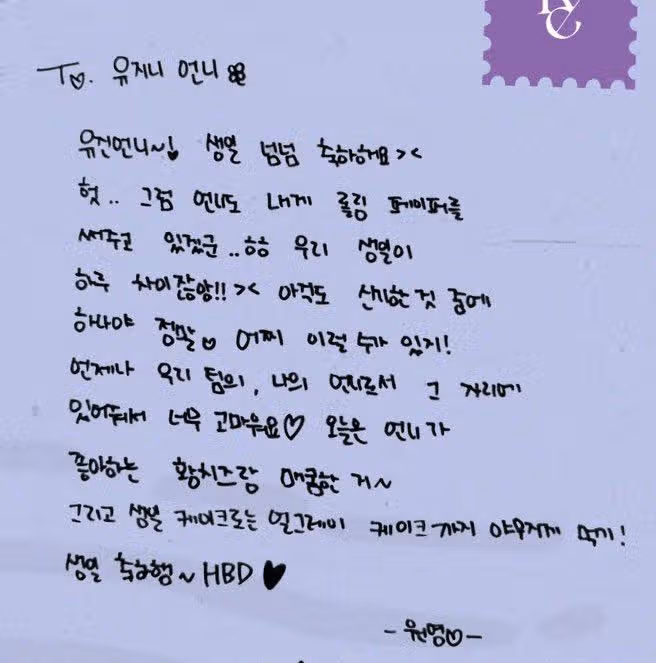 To. 유지니 언니
유진언니~! 생일 넘넘 축하해요><
헛.. 그럼 언니도 내게 롤링 페이퍼를
써주고 있겠군..ㅎㅎ 우리 생일이
하루 차이잖앙!! >< 아직도 신기한 것 중에
하나야 정말♡ 어찌 이럴 수가 있지!
언제나 우리 팀의, 나의 언니로서 그 자리에
있어줘서 너무 고마워요♡ 오늘은 언니가
좋아하는 황치즈랑 매콤한 거~
그리고 생일 케이크로는 얼그레이 케이크까지 야무지게 먹기!
생일 축하행~ HBD ♥
- 원영♡ -